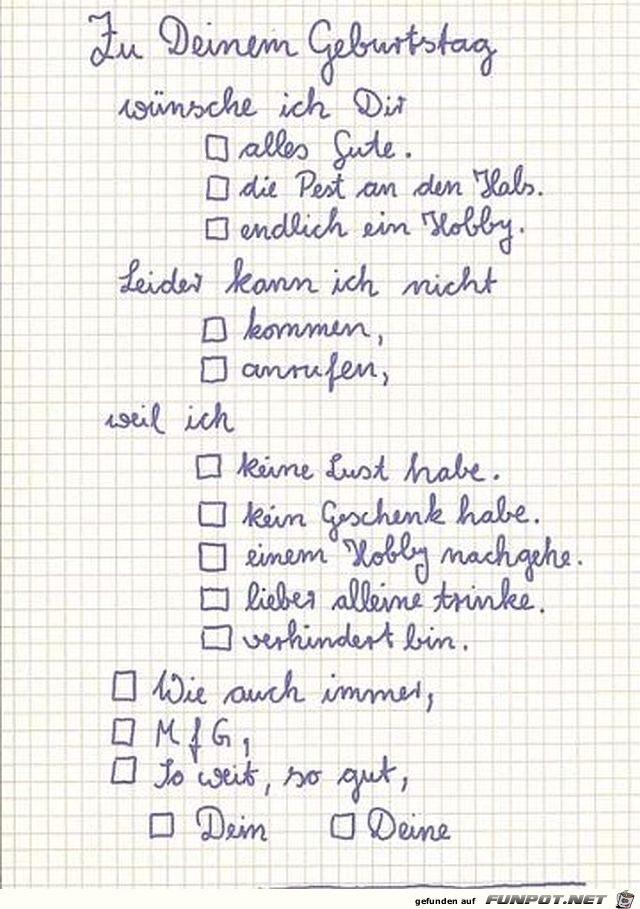 Zu Deinem Geburtstag
wünsche ich Dir
alles Gute.
die Pest an den Hals.
endlich ein Hobby.
Leider kann ich nicht
kommen,
anrufen,
weil ich
keine Lust habe.
kein Geschenk habe.
einem Hobby nachgehe.
lieber alleine trinke.
verhindert bin.
Wie auch immer,
MfG,
So weit, so gut,
Dein Deine
gefunden auf FUNPOT.NET